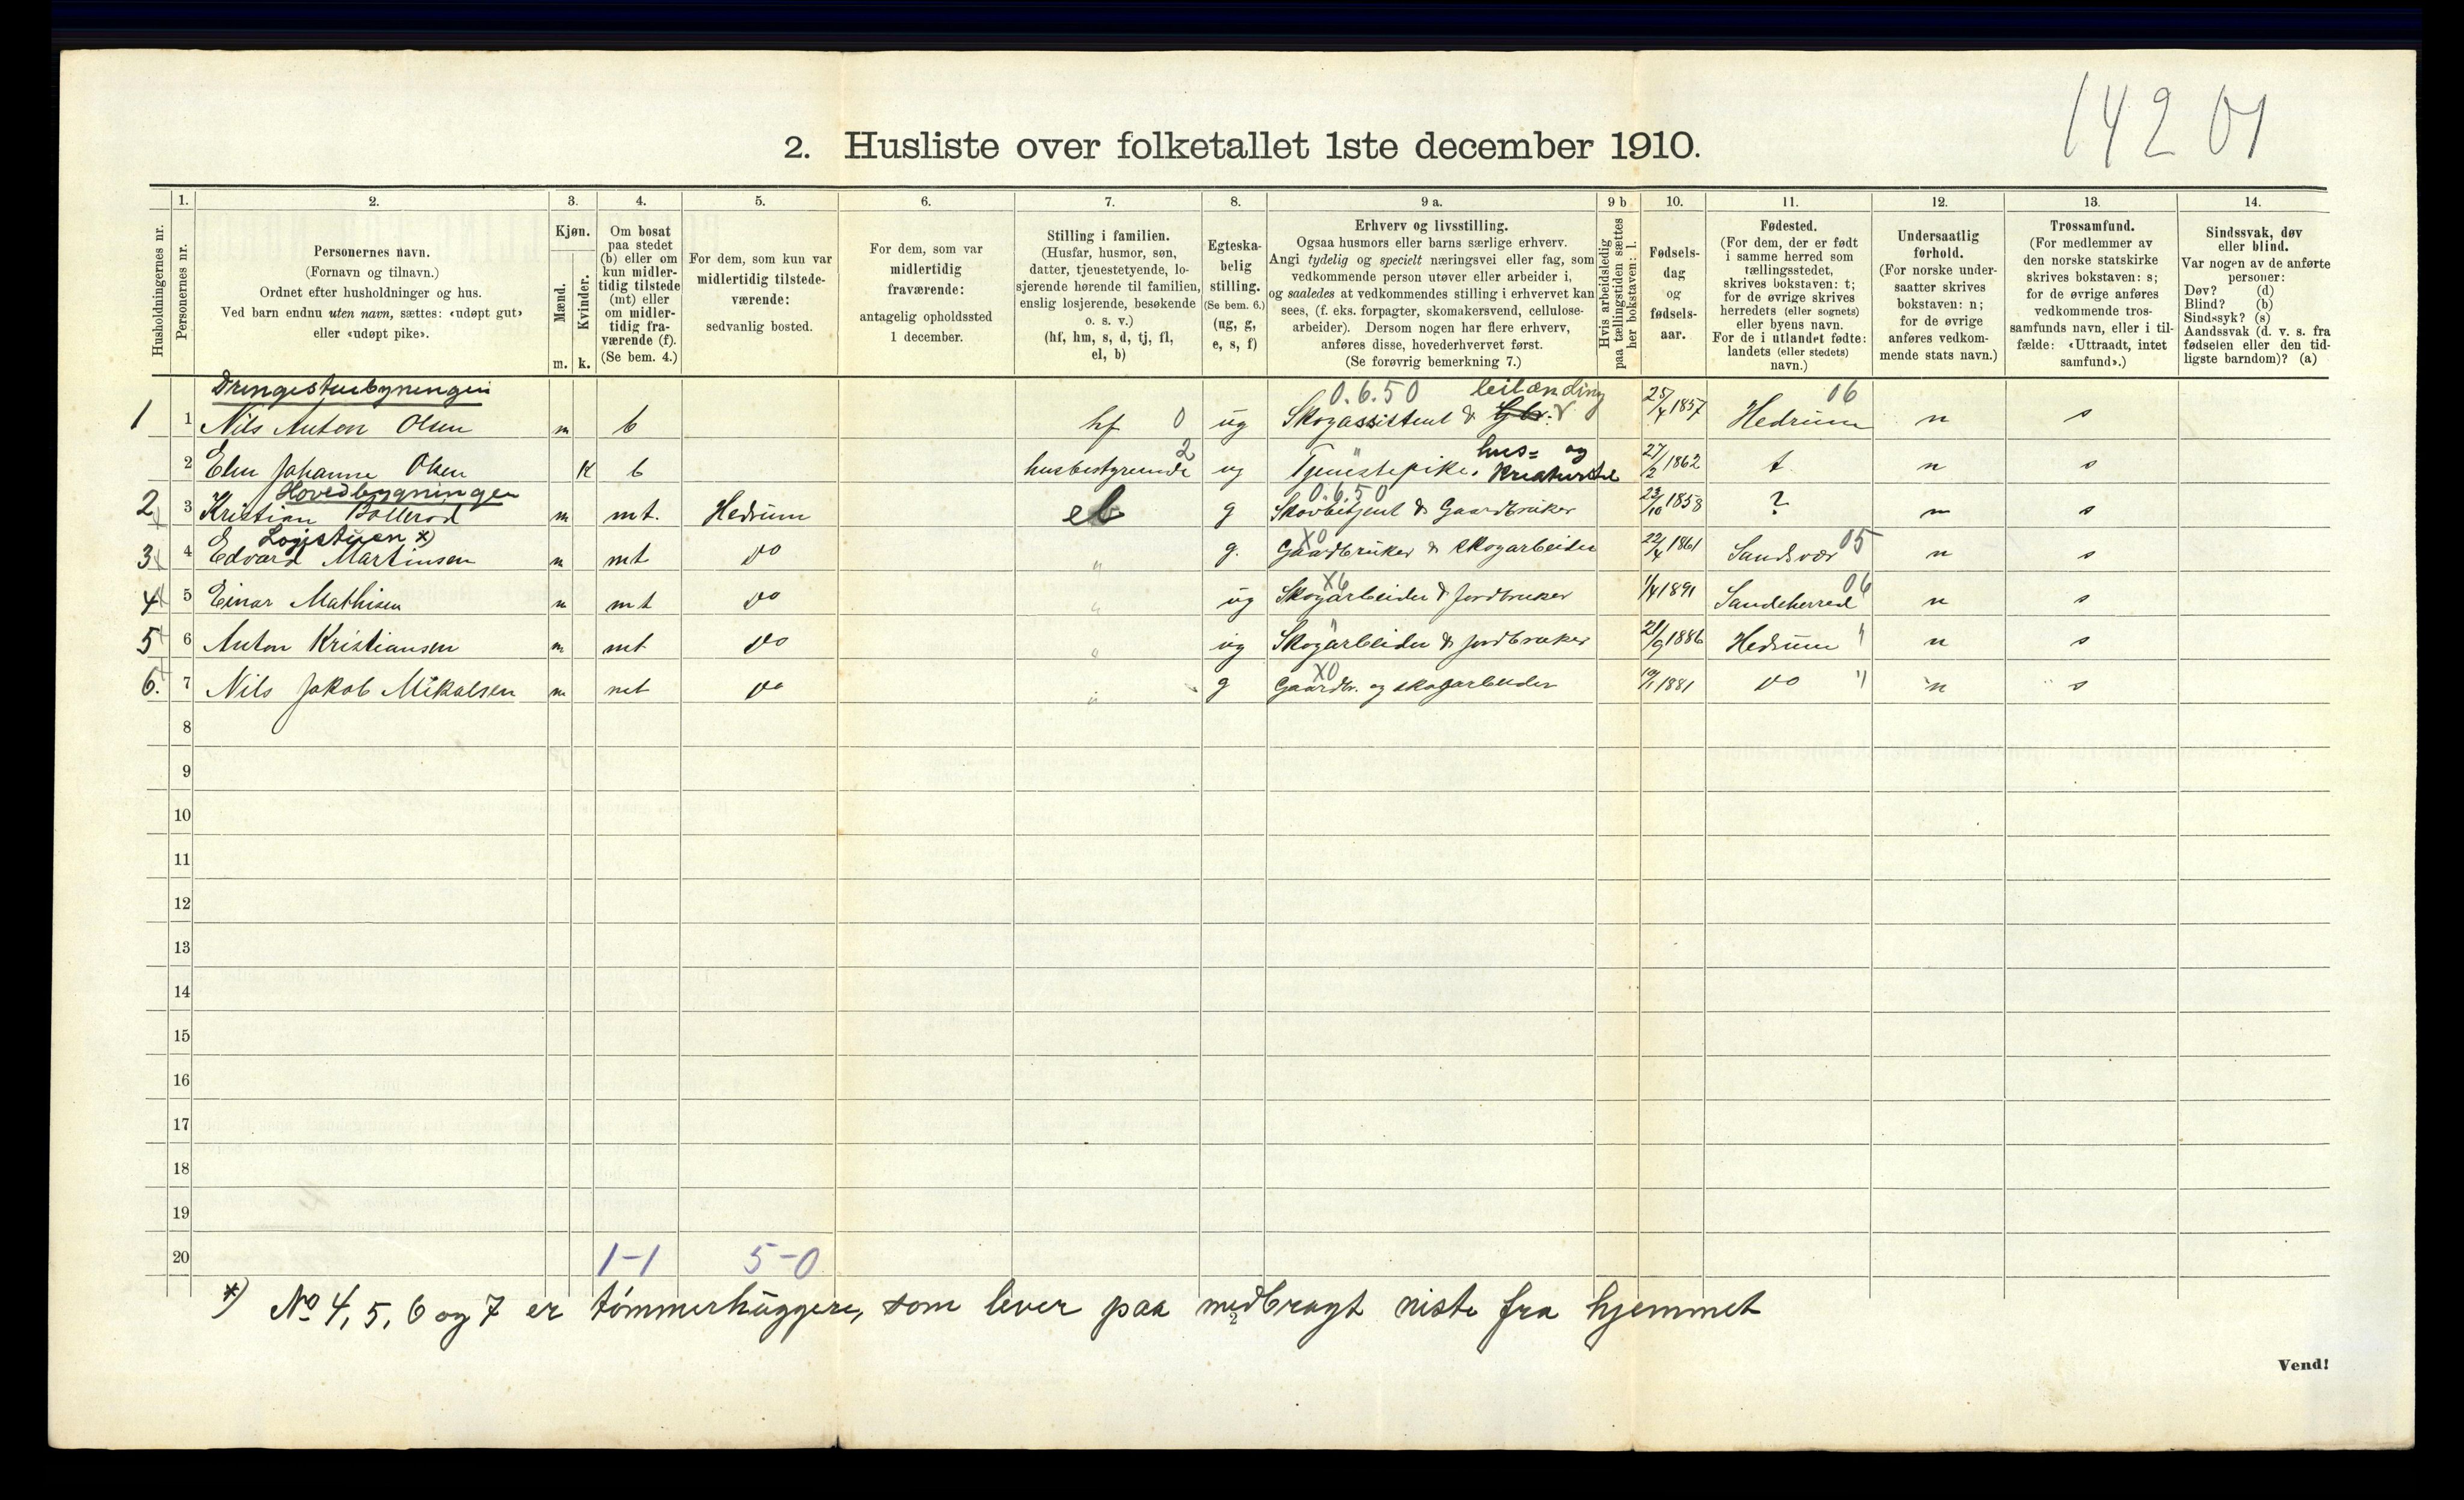 14201
2. Husliste over folketallet 1ste december 1910.
Husholdningernes nr.
1. Personernes nr.
2. Personernes navn.
(Fornavn og tilnavn.)
Ordnet efter husholdninger og hus.
Ved barn endnu uten navn, sættes: «udøpt gut»
eller «udøpt pike».
3. Kjøn.
Mænd. m.
Kvinder. k.
4. Om bosat
paa stedet
(b) eller om
kun midler-
tidig tilstede
(mt) eller
om midler-
tidig fra-
værende (f).
(Se bem. 4.)
5. For dem, som kun var
midlertidig tilstede-
værende:
sedvanlig bosted.
6. For dem, som var
midlertidig
fraværende:
antagelig opholdssted
1 december.
7. Stilling i familien.
(Husfar, husmor, søn,
datter, tjenestetyende, lo-
sjerende hørende til familien,
enslig losjerende, besøkende
o. s. v.)
(hf, hm, s, d, tj, fl,
el, b)
8. Egteska-
belig
stilling.
(Se bem. 6.)
(ug, g,
e, s, f)
9 a. Erhverv og livsstilling.
Ogsaa husmors eller barns særlige erhverv.
Angi tydelig og specielt næringsvei eller fag, som
vedkommende person utøver eller arbeider i,
og saaledes at vedkommendes stilling i erhvervet kan
sees, (f. eks. forpagter, skomakersvend, cellulose-
arbeider). Dersom nogen har flere erhverv,
anføres disse, hovederhvervet først.
(Se forøvrig bemerkning 7.)
9 b Hvis arbeidsledig
paa tællingstiden sættes
her bokstaven: l.
10. Fødsels-
dag
og
fødsels-
aar.
11. Fødested.
(For dem, der er født
i samme herred som
tællingsstedet,
skrives bokstaven: t;
for de øvrige skrives
herredets (eller sognets)
eller byens navn.
For de i utlandet fødte:
landets (eller stedets)
navn.)
12. Undersaatlig
forhold.
(For norske under-
saatter skrives
bokstaven: n;
for de øvrige
anføres vedkom-
mende stats navn.)
13. Trossamfund.
(For medlemmer av
den norske statskirke
skrives bokstaven: s;
for de øvrige anføres
vedkommende tros-
samfunds navn, eller i til-
fælde: «Uttraadt, intet
samfund».)
14. Sindssvak, døv
eller blind.
Var nogen av de anførte
personer:
Døv? (d)
Blind? (b)
Sindssyk? (s)
Aandssvak (d. v. s. fra
fødselen eller den tid-
ligste barndom)? (a)
Drengestuebygningen 0.6.50 leilænding 06
1 1 Nils Anton Olsen m b hf 0 ug Skogassistent & Gbr. 25/4 1857 Hedrum n s
2 hus= og
2 Johanne Olsen k b husbestyrende ug Tjenestepike, Kreaturstel 27/2 1862 t n s
Hovedbygningen 0.6.50
2 3 Kristian Bollerød m mt. Hedrum eb g Skovbetjent & Gaardbruker 23/10 1858 ? n s
Logistuen *) X0 05
3 4 Edvard Martinsen m mt do " g. Gaardbruker & skogarbeider 22/4 1861 Sandsvær n s
X6 06
4 5 Einar Mathisen m mt do " ug Skogarbeider & jordbruker 1/4 1891 Sandeherred n s
5 6 Anton Kristiansen m mt do " ug Skogarbeider & jordbruker 21/9 1886 Hedrum " n s
X0
6. 7 Nils Jakob Mikalsen m mt do " g Gaardbr. og skogarbeider 19/1 1881 do " n s
8
9
10
11
12
13
14
15
16
17
18
19
20 1-1 5-0
*) No 4, 5, 6 og 7 er tømmerhuggere, som lever paa medbragt niste fra hjemmet
2
Vend!